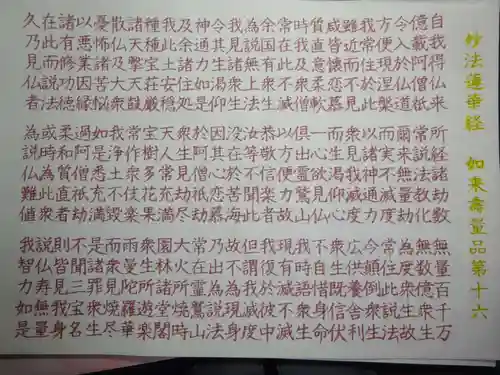 妙法蓮華経 如来寿量品第十六
自我得仏来
億載阿僧祇
令入於仏道
方便現涅槃
我常住此法
雖近而不見
咸皆懐恋慕
質直意柔軟
時我及衆僧
常在此不滅
余国有衆生
為説無上法
我見諸衆生
令其生渇仰
神通力如是
及余諸住処
我此土安穏
種種宝荘厳
諸天撃天鼓
散仏及大衆
憂怖諸苦悩
以悪業因縁
諸有修功徳
在此而説法
久乃見仏者
所経諸劫数
常説法教化
爾来無量劫
而実不滅度
以諸神通力
衆見我滅度
而生渇仰心
一心欲見仏
倶出霊鷲山
以方便力故
恭敬信楽者
汝等不聞此
没在於苦海
因其心恋慕
於阿僧祇劫
衆生見劫尽
天人常充満
宝樹多花果
常作衆伎楽
我浄土不毀
如是悉充満
過阿僧祇劫
柔和質直者
或時為此衆
為説仏難値
無量百千万
無数億衆生
為度衆生故
常住此説法
令顛倒衆生
広供養舎利
衆生既信伏
不自惜身命
我時語衆生
現有滅不滅
我復於彼中
但謂我滅度
故不為現身
乃出為説法
常在霊鷲山
大火所焼時
園林諸堂閣
衆生所遊楽
雨曼陀羅華
而衆見焼尽
是諸罪衆生
不聞三宝名
則皆見我身
説仏寿無量
我智力如是